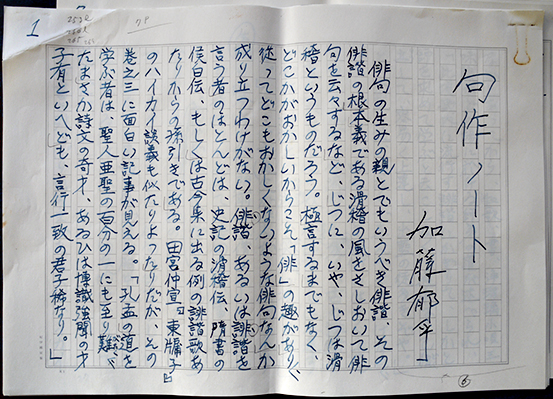 句作ノート
加藤郁乎
俳句の生みの親とでもいうべき俳諧、その
俳諧の根本義である滑稽の風をさしおいて俳
句を云々するなど、じつに、いや、じつは滑
稽というものだろう。極言するまでもなく、
どこかがおかしいからこそ「俳」の趣があり、
従ってどこもおかしくないような俳句なんか
成り立つわけがない。俳諧、あるいは誹諧を
言う者のほとんどは、史記の滑稽伝、隋書の
侯白伝、もしくは古今集に出る例の誹諧歌あ
たりからの孫引きである。田宮仲宣『東牖子』
のハイカイ談義も似たりよったりだが、その
巻之三に面白い記事が見える。「孔孟の道を
学ぶ者は、聖人亜聖の百分の一にも至り難く、
たまさか詩文の奇才、あるひは博識強聞の才
子有といへども、言行一致の君子稀なり。」
1
6